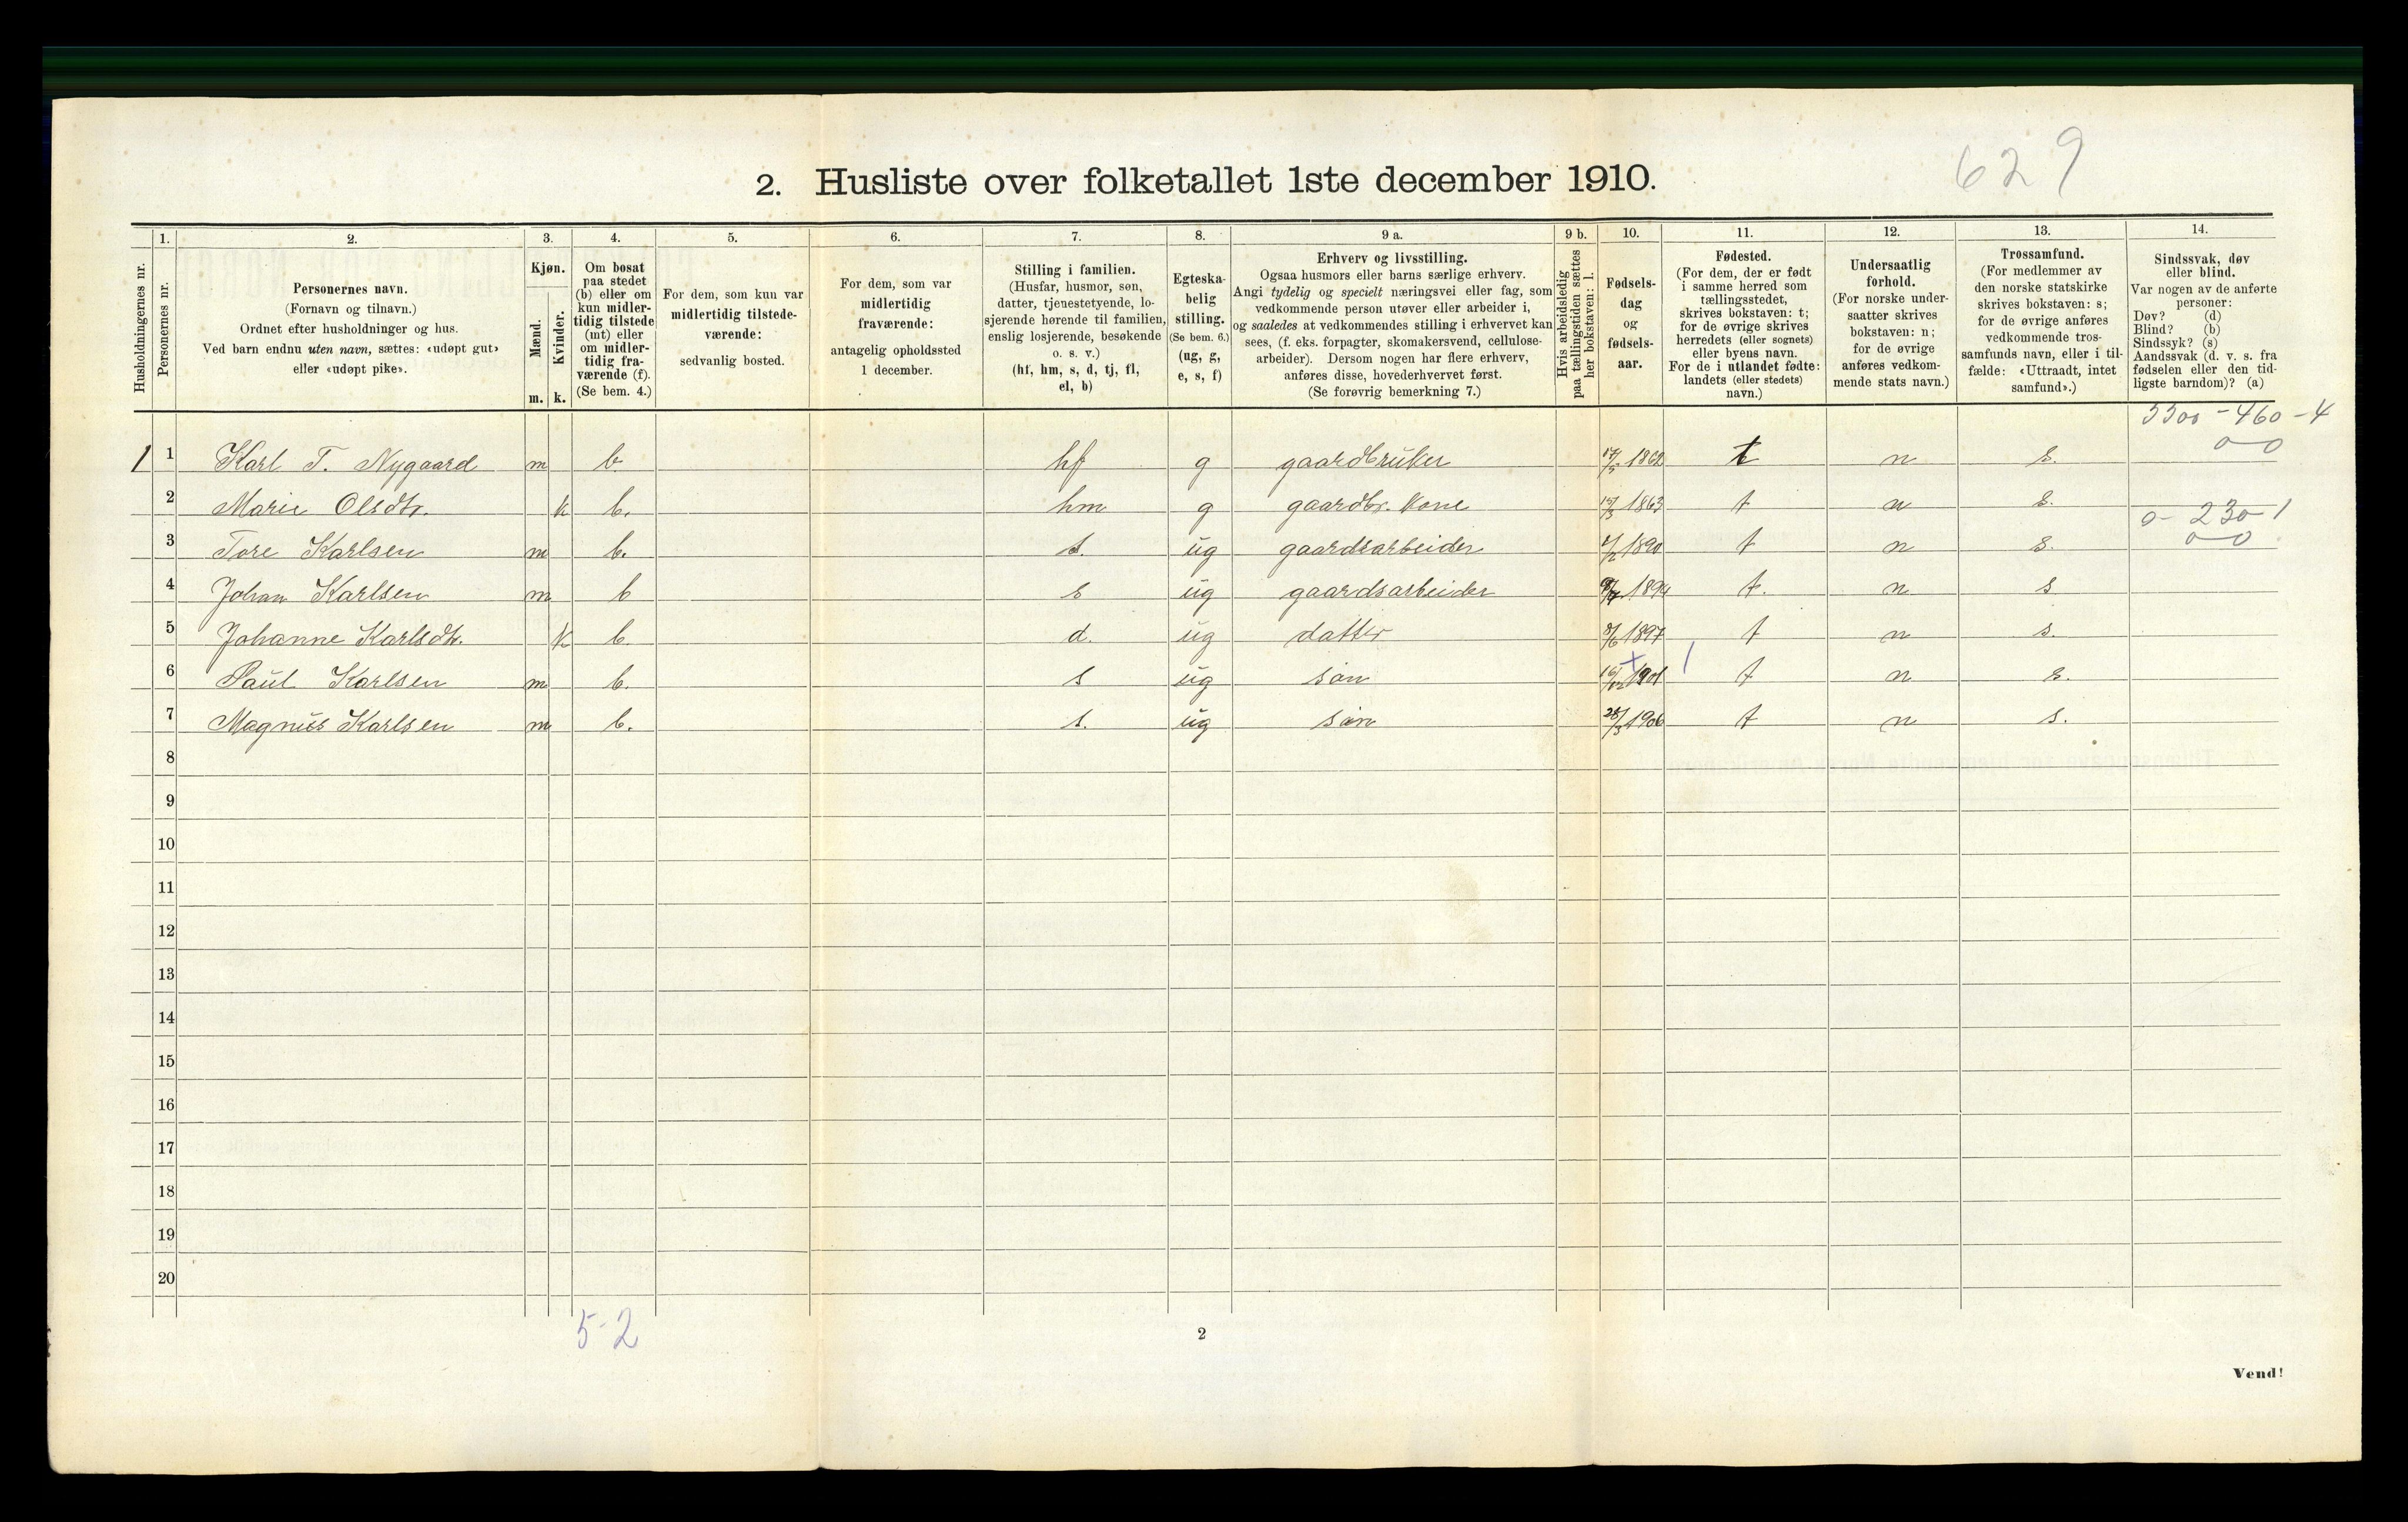 629
2. Husliste over folketallet 1ste december 1910.
1. 2. 3. 4. 5. 6. 7. 8. 9 a. 9 b. 10. 11. 12. 13. 14.
Husholdningernes nr.
Personernes nr.
Personernes navn.
(Fornavn og tilnavn.)
Ordnet efter husholdninger og hus.
Ved barn endnu uten navn, sættes: «udøpt gut»
eller «udøpt pike».
Kjøn.
Mænd.
Kvinder.
m. k.
Om bosat
paa stedet
(b) eller om
kun midler-
tidig tilstede
(mt) eller
om midler-
tidig fra-
værende (f).
(Se bem. 4.)
For dem, som kun var
midlertidig tilstede-
værende:
sedvanlig bosted.
For dem, som var
midlertidig
fraværende:
antagelig opholdssted
1 december.
Stilling i familien.
(Husfar, husmor, søn,
datter, tjenestetyende, lo-
sjerende hørende til familien,
enslig losjerende, besøkende
o. s. v.)
(hf, hm, s, d, tj, fl,
el, b)
Egteska-
belig
stilling.
(Se bem. 6.)
(ug, g,
e, s, f)
Erhverv og livsstilling.
Ogsaa husmors eller barns særlige erhverv.
Angi tydelig og specielt næringsvei eller fag, som
vedkommende person utøver eller arbeider i,
og saaledes at vedkommendes stilling i erhvervet kan
sees, (f. eks. forpagter, skomakersvend, cellulose-
arbeider). Dersom nogen har flere erhverv,
anføres disse, hovederhvervet først.
(Se forøvrig bemerkning 7.)
Hvis arbeidsledig
paa tællingstiden sættes
her bokstaven: l.
Fødsels-
dag
og
fødsels-
aar.
Fødested.
(For dem, der er født
i samme herred som
tællingsstedet,
skrives bokstaven: t;
for de øvrige skrives
herredets (eller sognets)
eller byens navn.
For de i utlandet fødte:
landets (eller stedets)
navn.)
Undersaatlig
forhold.
(For norske under-
saatter skrives
bokstaven: n;
for de øvrige
anføres vedkom-
mende stats navn.)
Trossamfund.
(For medlemmer av
den norske statskirke
skrives bokstaven: s;
for de øvrige anføres
vedkommende tros-
samfunds navn, eller i til-
fælde: «Uttraadt, intet
samfund».)
Sindssvak, døv
eller blind.
Var nogen av de anførte
personer:
Døv? (d)
Blind? (b)
Sindssyk? (s)
Aandssvak (d. v. s. fra
fødselen eller den tid-
ligste barndom)? (a)
5500 - 460 - 4
0-0
1 1 Karl T. Nygaard m b hf g gaardbruker 1862 t n s.
2 Marie Olsdtr. k b. hm g gaardbr. kone 15/3 1863 t n s.
0- 230-1
3 Tore Karlsen m b. s. ug gaardsarbeider 1890 t n s. 0-0
4 Johan Karlsen m b s ug gaardsarbeider 1894 t. n s
5 Johanne Karlsdtr. k b. d. ug datter 8/6 1897 t n s.
6 Paul Karlsen m b. s ug søn 16/12 1901 t n s.
7 Magnus Karlsen m b. s. ug søn 28/3 1906 t n s.
8
9
10
11
12
13
14
15
16
17
18
19
20
5-2
2
Vend!